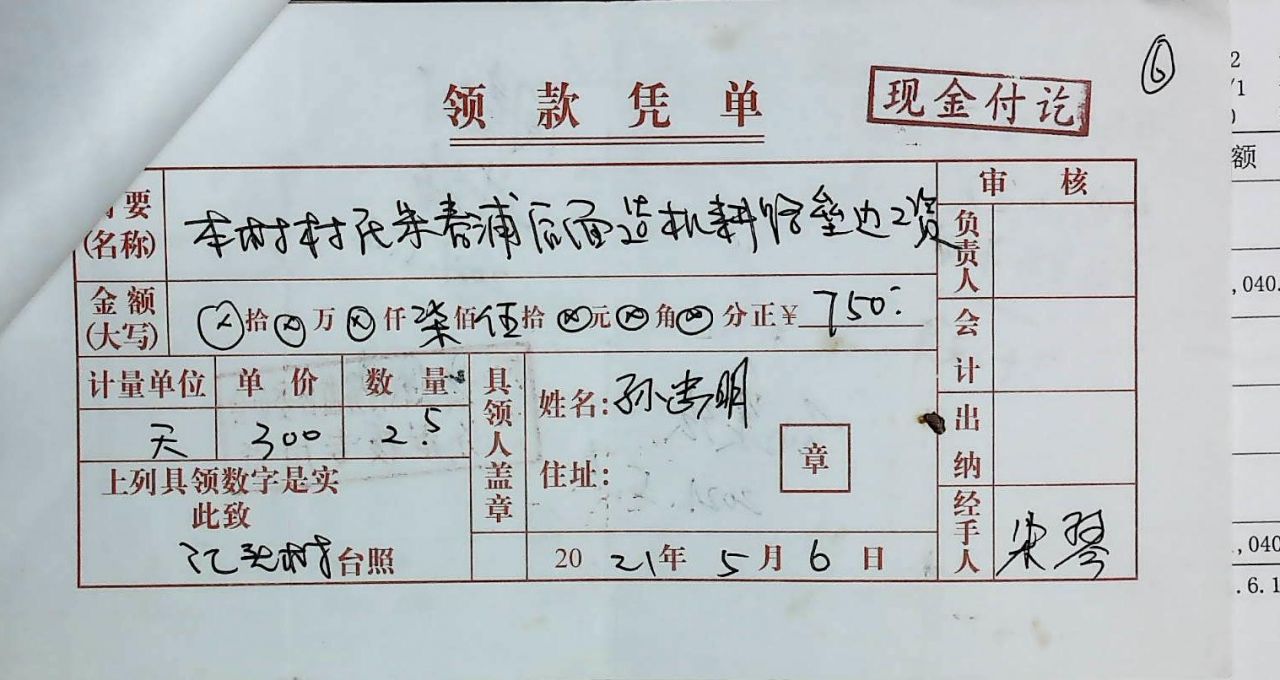 ⑥
领款凭单
现金付讫
要
(名称)
本村村民朱春浦后面造机耕路垒边工资
审核
负责人
金额
(大写)
ⓧ拾ⓧ万ⓧ仟柒佰伍拾ⓧ元ⓧ角ⓧ分正¥750.-
会计
计量单位 单价 数量
天 300 2.5
具领人盖章
姓名:孙忠明
住址:
章
出纳
上列具领数字是实
此致
台照
2021年5月6日
经手人
朱琴
2
/1
额
,040.
,040
.6.1